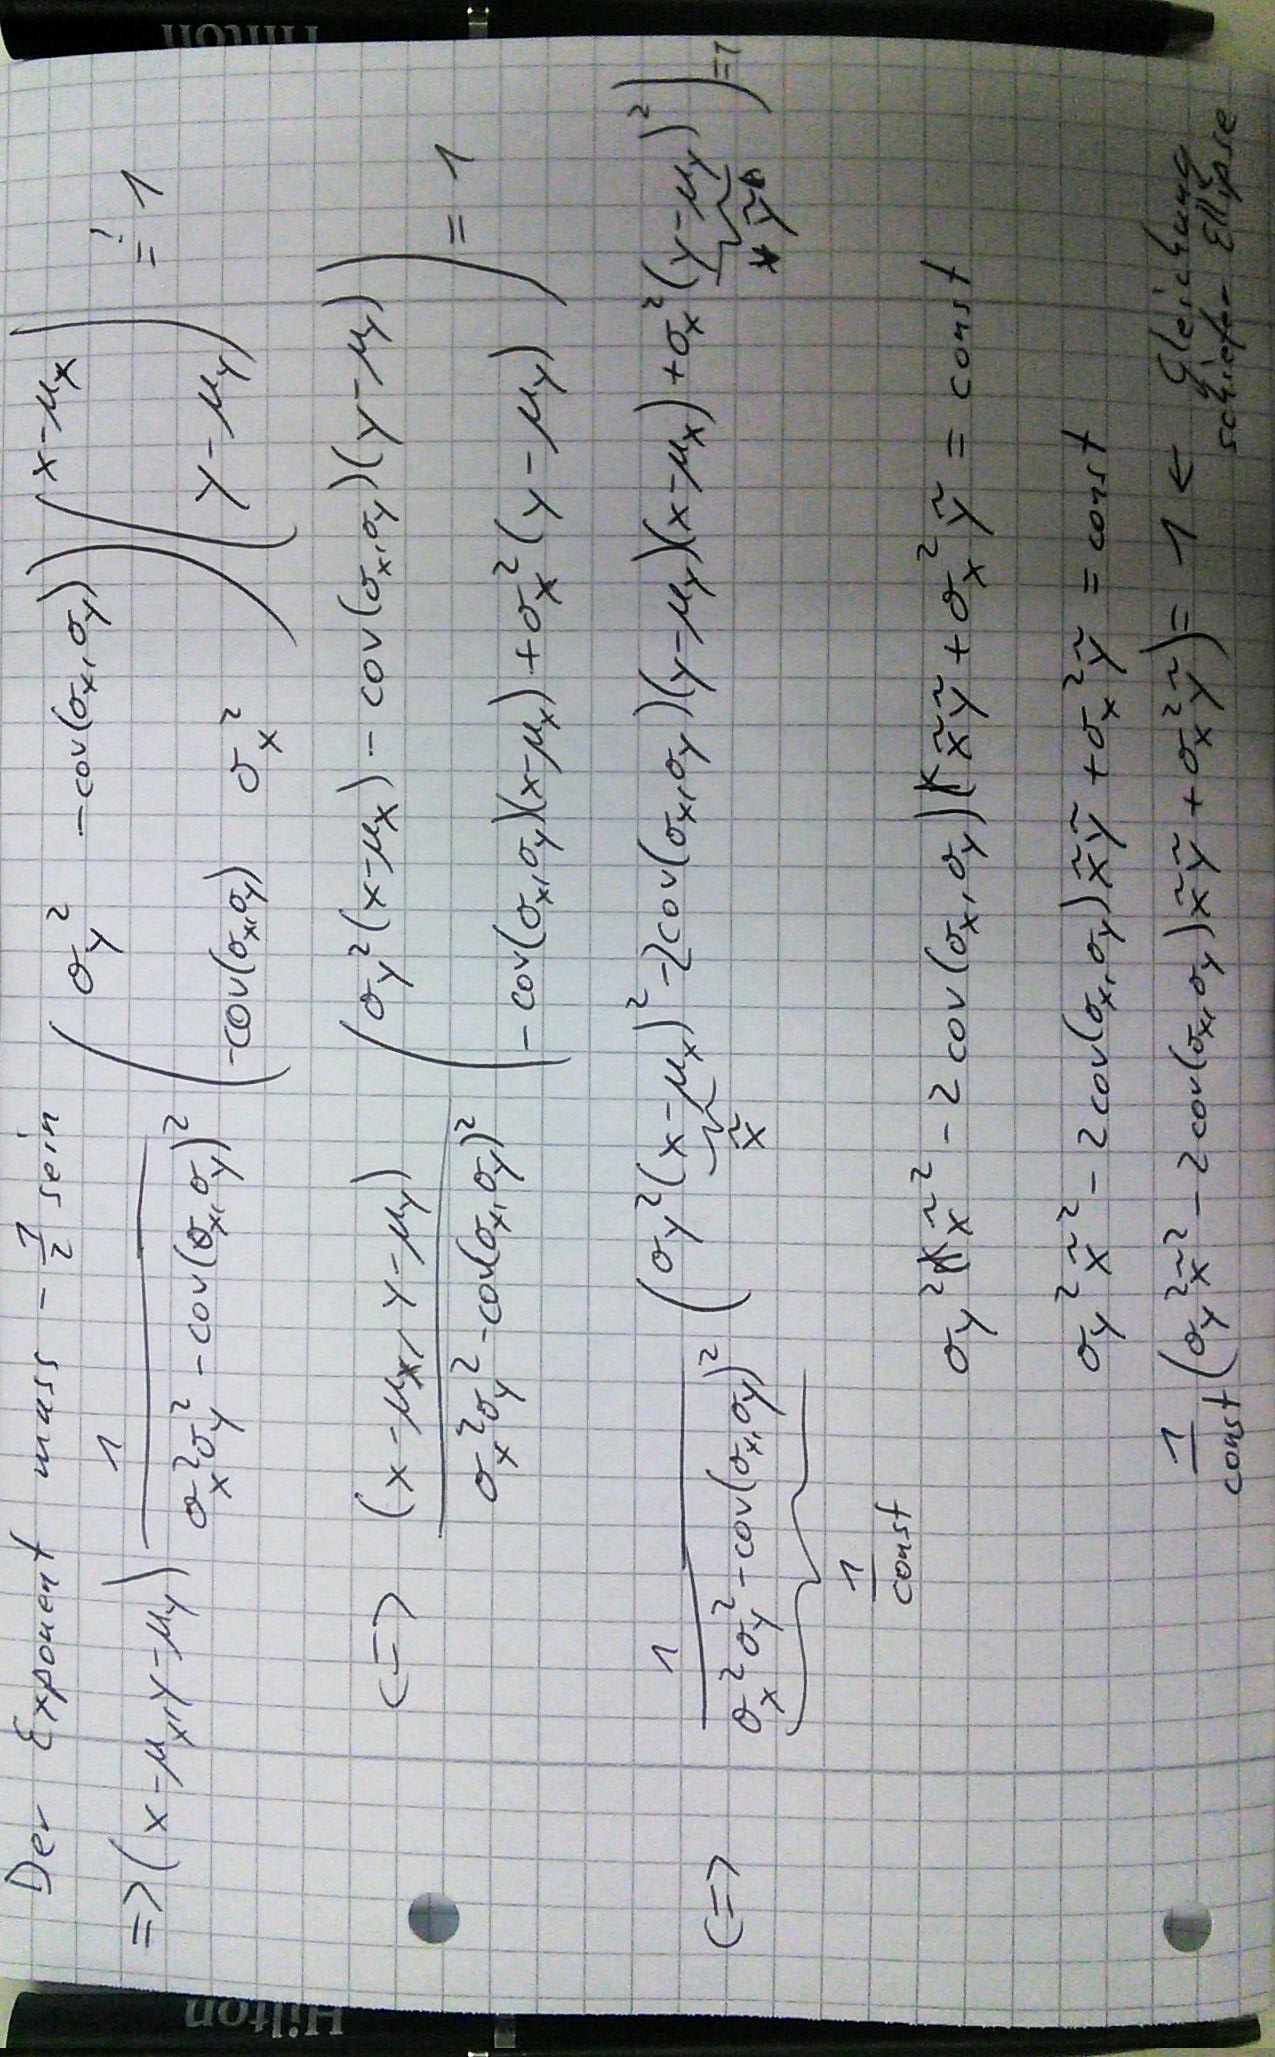 Der Exponent muss -1/2 sein
=> (x-μₓ, y-μ_y) 1/(σₓ²σ_y² - cov(σₓ,σ_y)²) ( σ_y² -cov(σₓ,σ_y) ) ( x-μₓ ) =! 1
( -cov(σₓ,σ_y) σₓ² ) ( y-μ_y )
<=> (x-μₓ, y-μ_y)/(σₓ²σ_y² - cov(σₓ,σ_y)²) ( σ_y²(x-μₓ) - cov(σₓ,σ_y)(y-μ_y) ) = 1
( -cov(σₓ,σ_y)(x-μₓ) + σₓ²(y-μ_y) )
<=> 1/(σₓ²σ_y² - cov(σₓ,σ_y)²) (σ_y²(x-μₓ)² - 2cov(σₓ,σ_y)(y-μ_y)(x-μₓ) + σₓ²(y-μ_y)²) = 1
x̃ ỹ
1/const
σ_y² x̃² - 2 cov(σₓ,σ_y) x̃ỹ + σₓ² ỹ = const
σ_y² x̃² - 2 cov(σₓ,σ_y) x̃ỹ + σₓ² ỹ = const
1/const (σ_y² x̃² - 2 cov(σₓ,σ_y) x̃ỹ + σₓ² ỹ) = 1 ← Gleichung
schiefer Ellipse
Hilton
Hilton